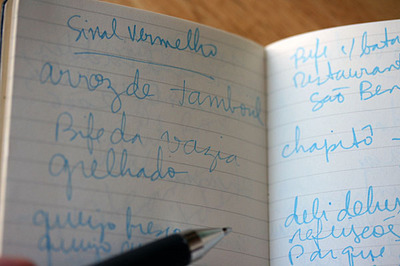 Sinal Vermelho
arroz de tamboril
Bife da vazia
grelhado
queijo fresco
queijo
Bife c/ bata
Restauran
São Ben
chapitô -
deli delux
refeições
Parque